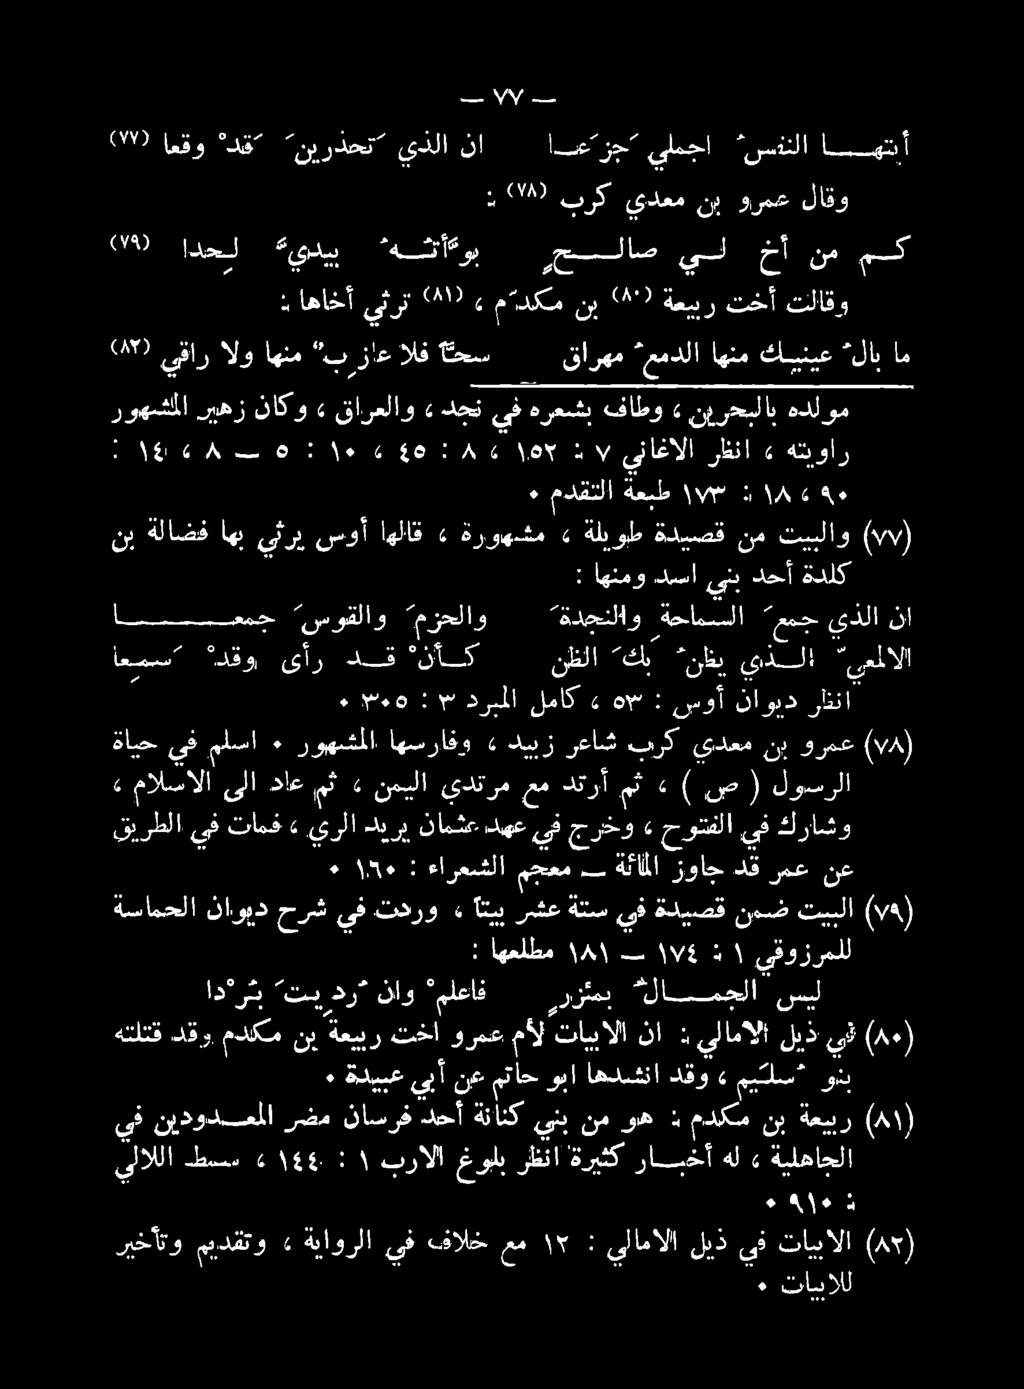 — ٧٧ —
أيتهـــا النفسُ اجملي جَزَعــا ان الذي تَحذرينَ قَدْ وقعا (٧٧)
وقال عمرو بن معدي كرب (٧٨) :
كــم من أخ لــي صالـــحٍ بوأتُــهُ بيديَّ لَـحدا (٧٩)
وقالت أخت ربيعة (٨٠) بن مكدّم ، (٨١) ترثي أخاها :
ما بالُ عينيـك منها الدمعُ مهراق سحّاً فلا عازِبٌ منها ولا راقي (٨٢)
مولده بالبحرين ، وطاف بشعره في نجد ، والعراق ، وكان زهير المشهور
راويته ، انظر الاغاني ٧ : ١٥٢ ، ٨ : ٤٥ ، ١٠ : ٥ — ٨ ، ١٤ :
٩٠ ، ١٨ : ١٧٣ طبعة التقدم .
(٧٧) والبيت من قصيدة طويلة ، مشهورة ، قالها أوس يرثي بها فضالة بن
كلدة أحد بني اسد ومنها :
ان الذي جمعَ الســماحةَ والنجدةَ والحزمَ والقوسَ جمعـــــا
الالمعيَّ الــذي يظنُ بكَ الظن كــأنْ قــد رأى وقدْ سَـمِـعا
انظر ديوان أوس : ٥٣ ، كامل المبرد ٣ : ٣٠٥ .
(٧٨) عمرو بن معدي كرب شاعر زبيد ، وفارسها المشهور . اسلم في حياة
الرسول ( ص ) ، ثم أرتد مع مرتدي اليمن ، ثم عاد الى الاسلام ،
وشارك في الفتوح ، وخرج في عهد عثمان يريد الري ، فمات في الطريق
عن عمر قد جاوز المائة — معجم الشعراء : ١٦٠ .
(٧٩) البيت ضمن قصيدة في ستة عشر بيتاً ، وردت في شرح ديوان الحماسة
للمرزوقي ١ : ١٧٤ — ١٨١ مطلعها :
ليس الجمـــالُ بمئزرٍ فاعلمْ وان رُدِيتَ بُـرْدا
(٨٠) في ذيل الامالي : ان الابيات لأم عمرو اخت ربيعة بن مكدم وقد قتلته
بنو سُلَـيم ، وقد انشدها ابو حاتم عن أبي عبيدة .
(٨١) ربيعة بن مكدم : هو من بني كنانة أحد فرسان مضر المعــدودين في
الجاهلية ، له أخبــار كثيرة انظر بلوغ الارب ١ : ١٤٤ ، سـمط اللالي
: ٩١٠ .
(٨٢) الابيات في ذيل الامالي : ١٢ مع خلاف في الرواية ، وتقديم وتأخير
للابيات .